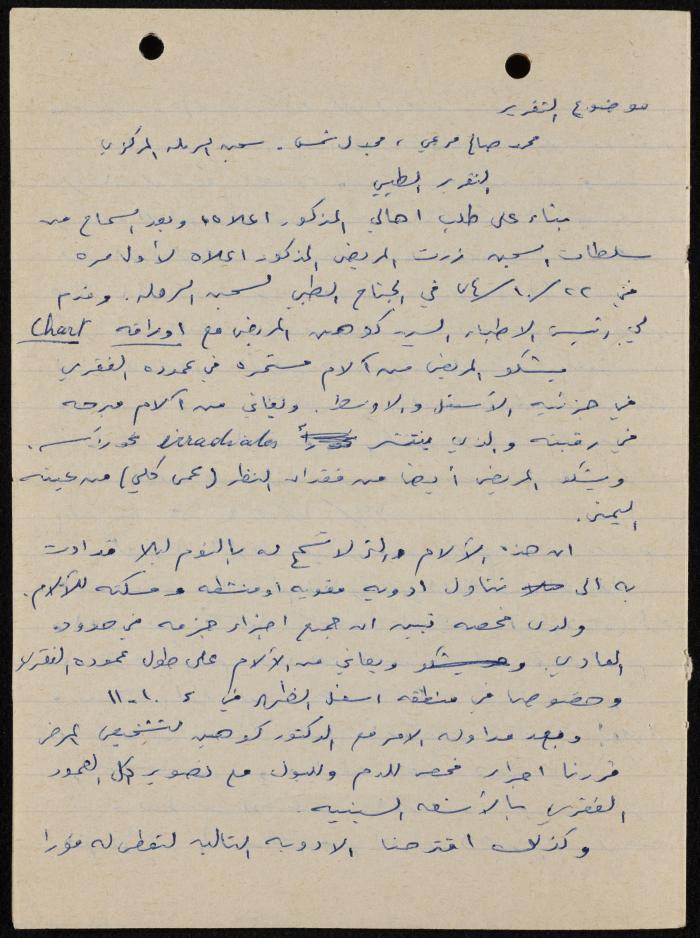 موضوع التقرير
محمد صالح مرعي ، مجدل شمس - سجن الرمله المركزي
التقرير الطبي
بناء على طلب اهالي المذكور اعلاه، وبعد السماح من
سلطات السجن زرت المريض المذكور اعلاه لأول مره
في ٢٢/١٠/٧٤ في الجناح الطبي لسجن الرمله. وقدم
لي رئيس الاطباء السيد كوهين المريض مع اوراقه Chart
يشكو المريض من آلام مستمره في عموده الفقري
في جزئيه الأسفل والاوسط. ويعاني من آلام مبرحه
في رقبته والذي ينتشر irradiates نحو رأسه.
ويشكو المريض أيضا من فقدان النظر (عمى كلي) من عينه
اليمنى.
ان هذه الآلام والتي لا تسمح له بالنوم ليلا قد ادت
به الى تناول ادويه مقويه او منشطه ومسكنه للآلام.
ولدى فحصه تبين ان جميع اجزاء جسمه في حدوده
العادي. ويعاني من الآلام على طول عموده الفقري
وخصوصا في منطقه اسفل الظهر في ١٠-١١
وبعد مداوله الامر مع الدكتور كوهين لتشخيص المرض
قررنا اجراء فحص للدم وللبول مع تصوير لكل العمود
الفقري بالأشعه السينيه.
وكذلك اقترحنا الادويه التاليه لتعطى له فورا